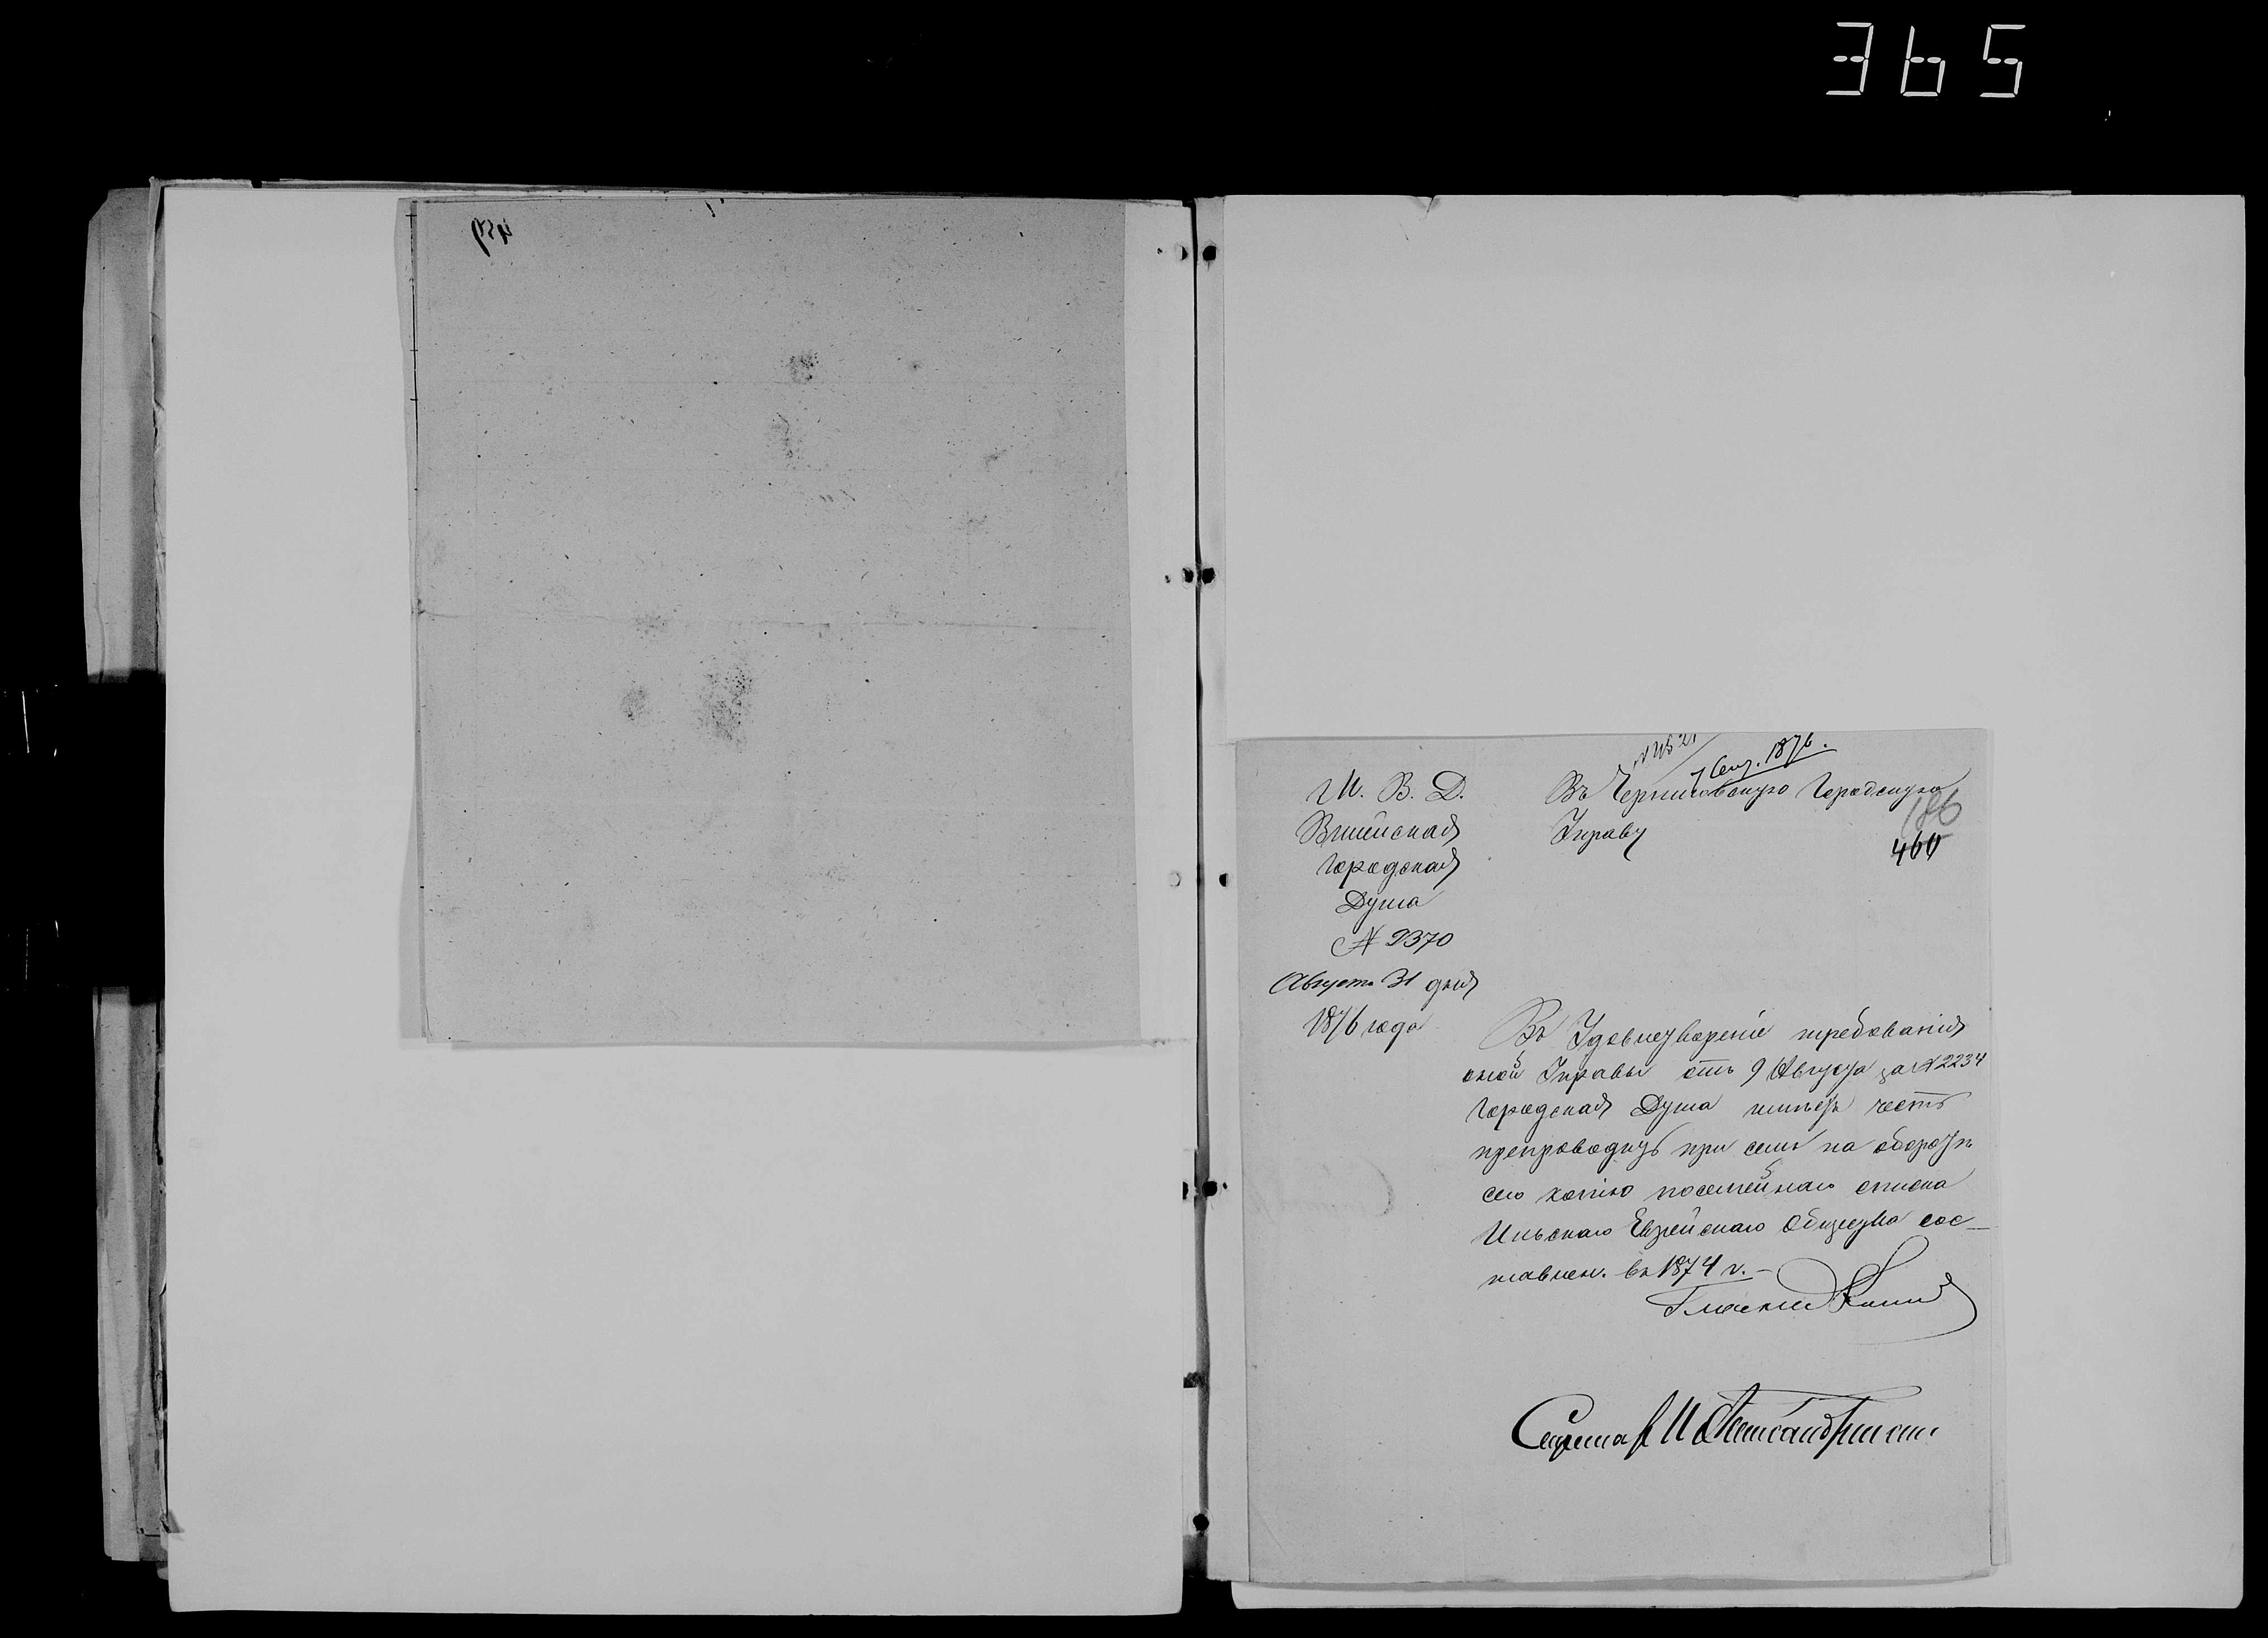 365
459
1 Сент. 1876.
М. В. Д.
Вилейская
Городская
Дума
№ 2370
Августа 31 дня
1876 года
Въ Черниговскую Городскую
Управу
186
460
Въ Удовлетвореніе требованія
оной Управы отъ 9 Августа за № 2234
Городская Дума имѣетъ честь
препроводить при семъ на оборотѣ
сего копію посемейнаго списка
Ильскаго Еврейскаго Общества сос-
тавлен. въ 1874 г.
Секретарь